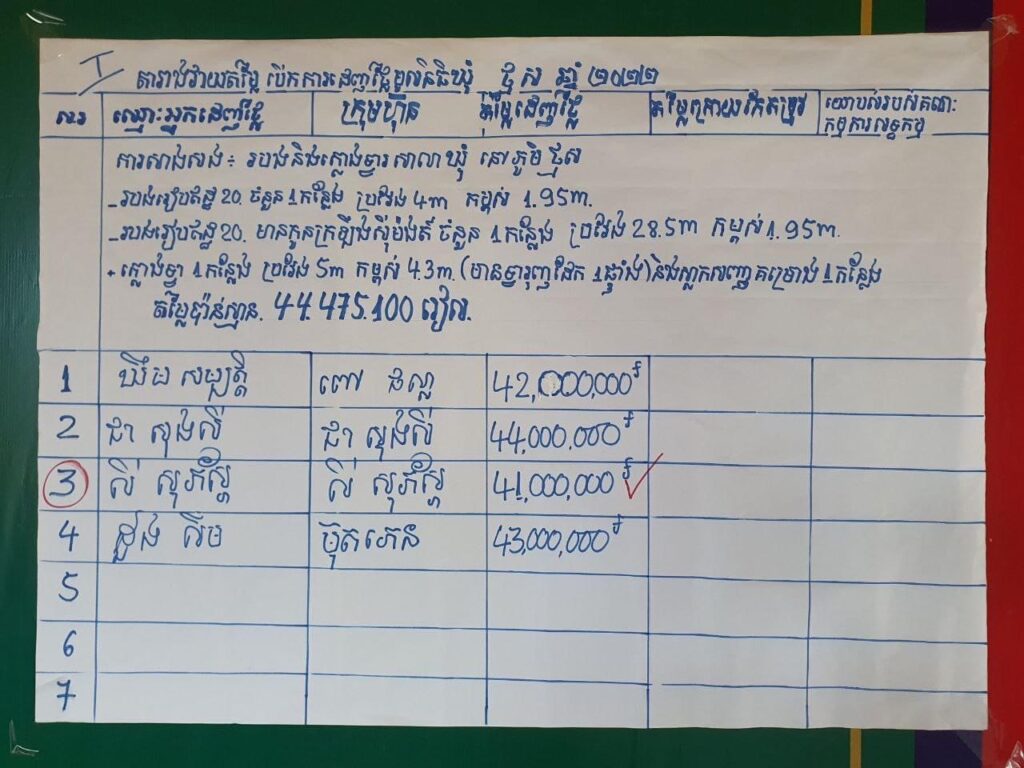 I
តារាងវាយតម្លៃ បើកការដេញថ្លៃមូលនិធិឃុំ ថ្មស ឆ្នាំ ២០២២
ល.រ ឈ្មោះអ្នកដេញថ្លៃ ក្រុមហ៊ុន តម្លៃដេញថ្លៃ តម្លៃក្រោយកែតម្រូវ យោបល់របស់គណៈ
កម្មការលទ្ធកម្ម
ការសាងសង់ៈ របងនិងក្លោងទ្វារសាលាឃុំ នៅភូមិ ថ្មស
-របងរៀបឥដ្ឋ 20. ចំនួន 1កន្លែង ប្រវែង 4m កម្ពស់ 1.95m.
-របងរៀបឥដ្ឋ 20. មានកូនក្រឡឹងស៊ីម៉ង់ត៍ ចំនួន 1កន្លែង ប្រវែង 28.5m កម្ពស់ 1.95m.
+ ក្លោងទ្វា 1កន្លែង ប្រវែង 5m កម្ពស់ 4.3m. (មានទ្វារុញដែក 1ផ្ទាំង) និងស្លាកសញ្ញគម្រោង 1កន្លែង
តម្លៃប៉ាន់ស្មាន. 44.475.100 រៀល.
1 ឃឹម សម្បត្តិ ពៅ ផល្លា 42,000,000៛
2 ជា សុងលី ជា សុងលី 44,000,000៛
3 លី សុភស្ដែ លី សុភស្ដែ 41,000,000៛
4 ដួង លឹម ប៊ុតភេន 43,000,000៛
5
6
7